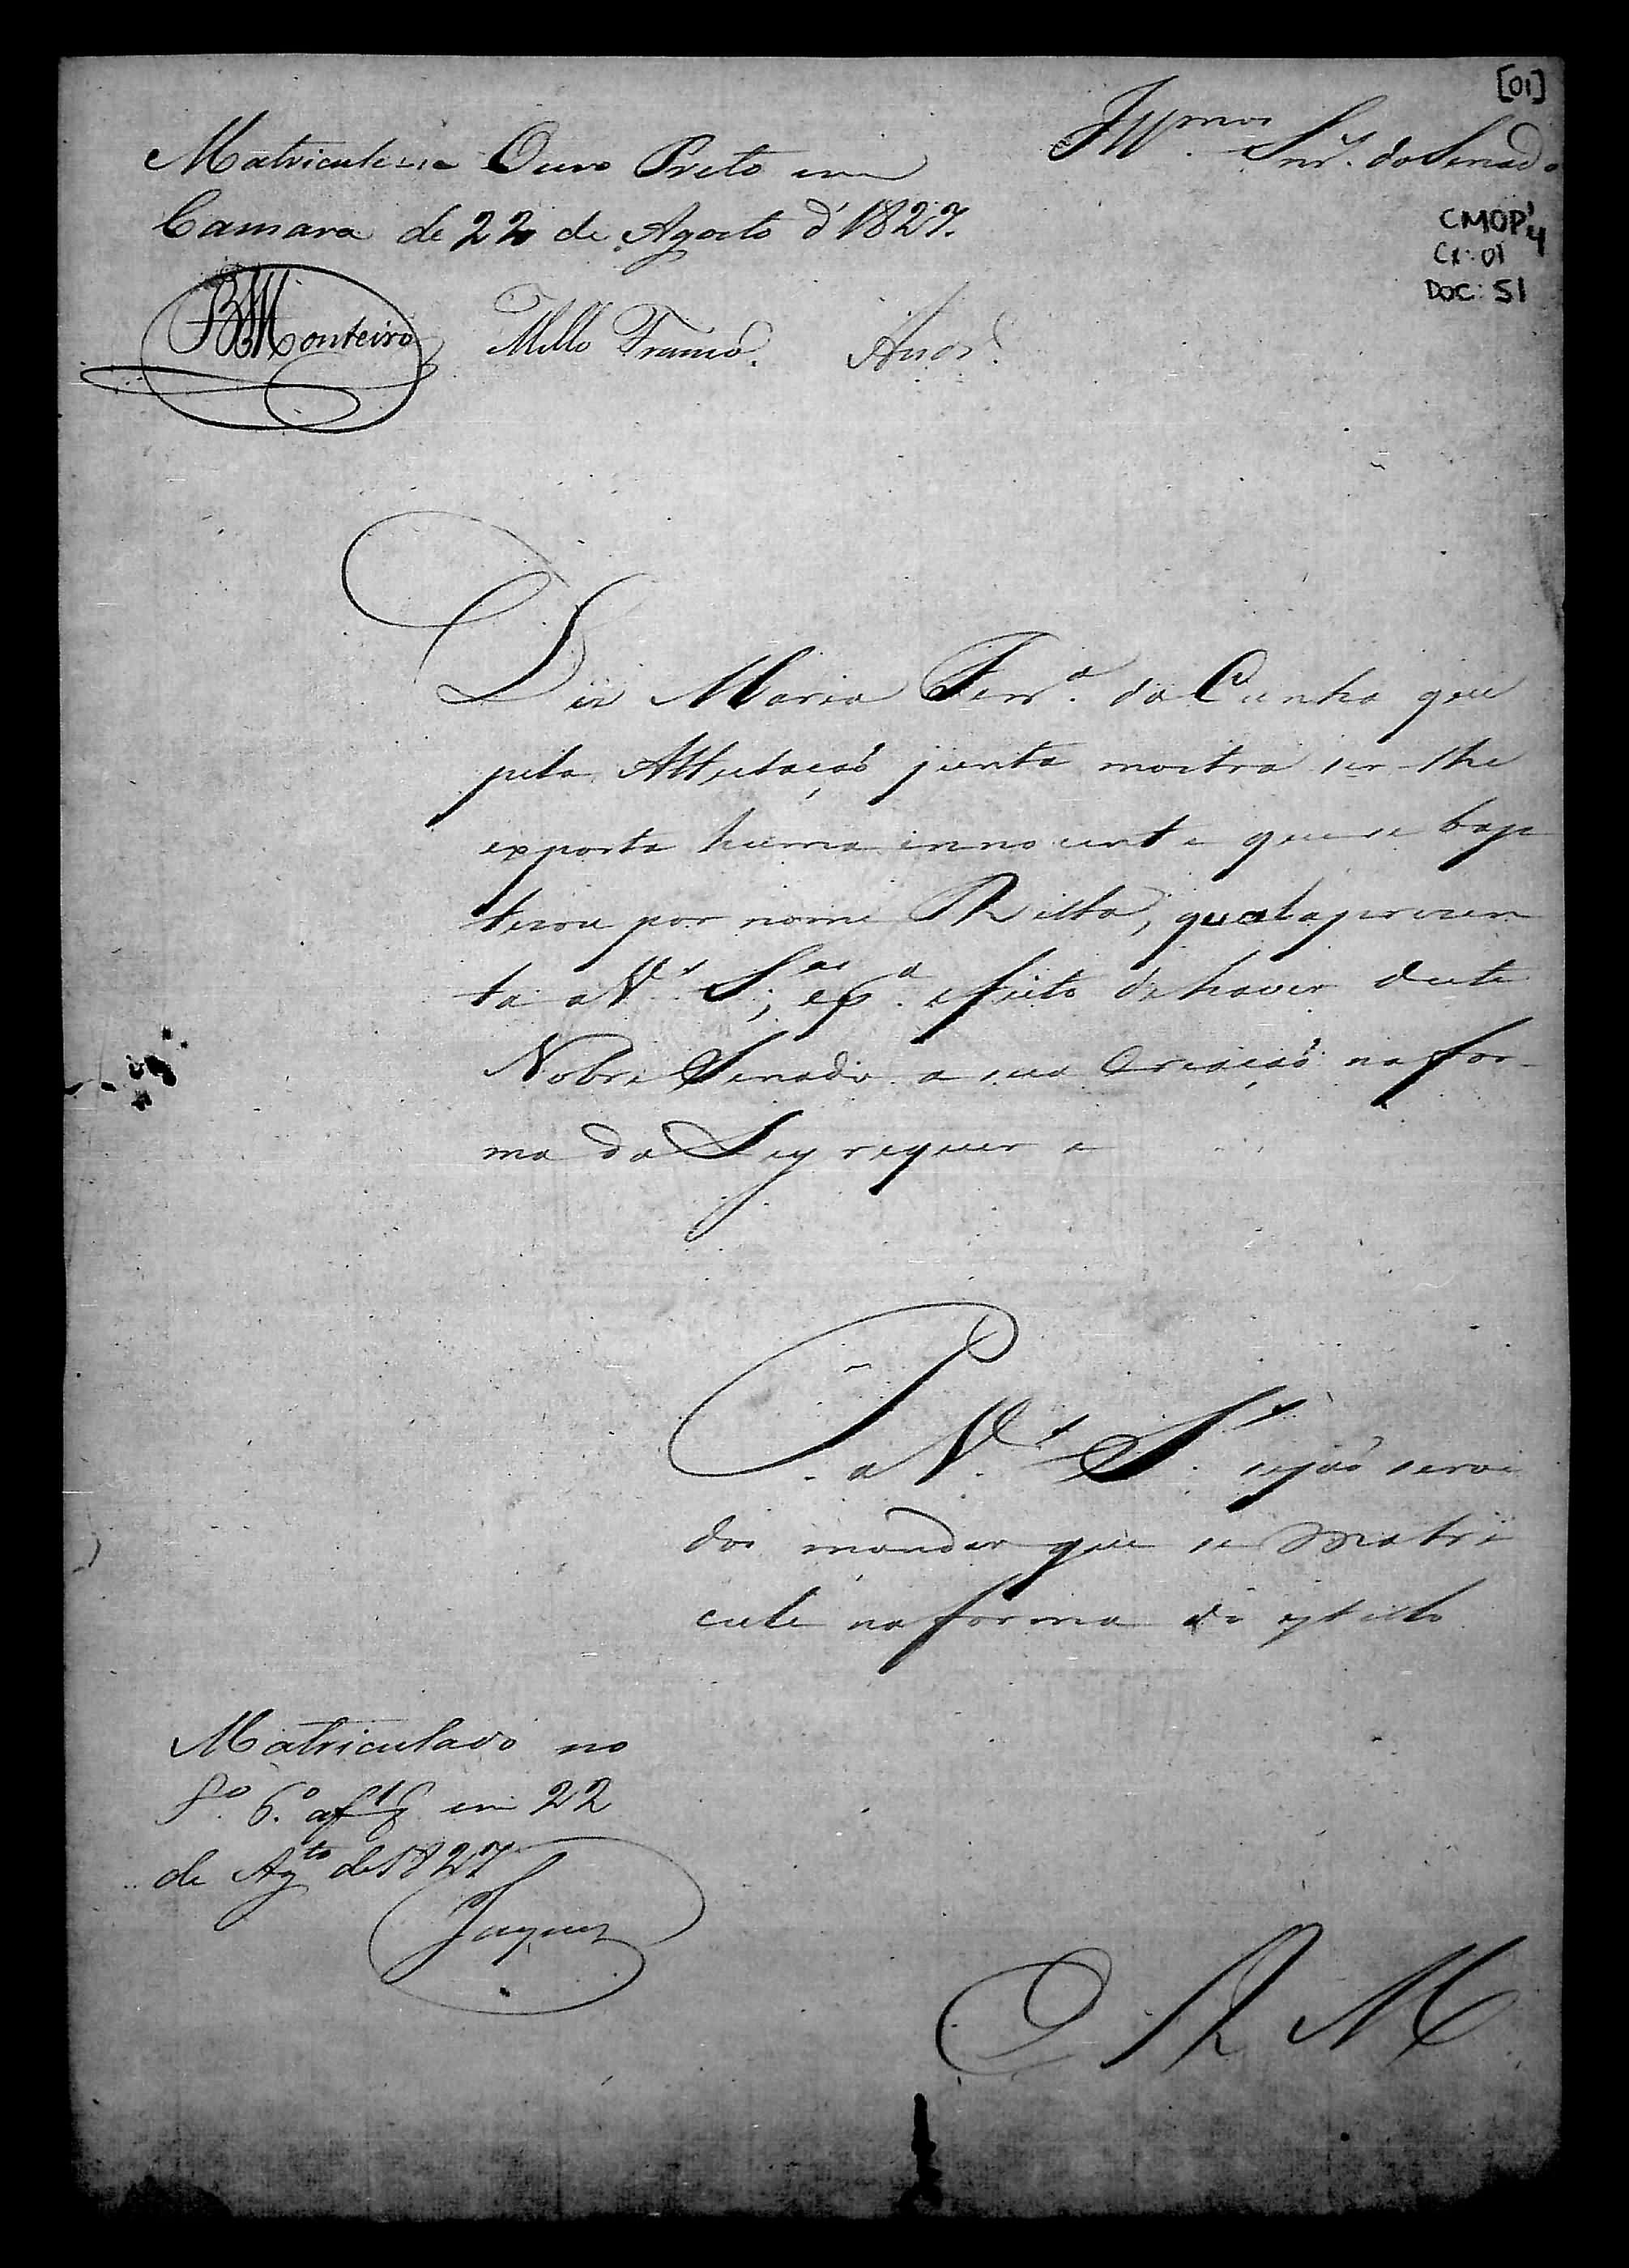 [01]
Ill.mos Snr.s do Senado
CMOP'4
Cx: 01
DOC: 51
Matricule se Ouro Preto em
Camara de 22 de Agosto d'1827.
BMMonteiro Mello Franco.
Diz Maria Ferr.a da Cunha que
pela Attestação junta mostra ser lhe
exposta huma innocente que se bap
tizou por nome Ritta, qual aprezen
ta a V.s S.as, e p.a efeito de haver deste
Nobre Senado a sua Criação na for-
ma da Ley requer e
P. a V.s S.s sejão servi
dos mandar que se matri
cule na forma do estillo
Matriculado no
L.o 6.o a f em 22
de Ag.to de 1827
Jaques
E R M